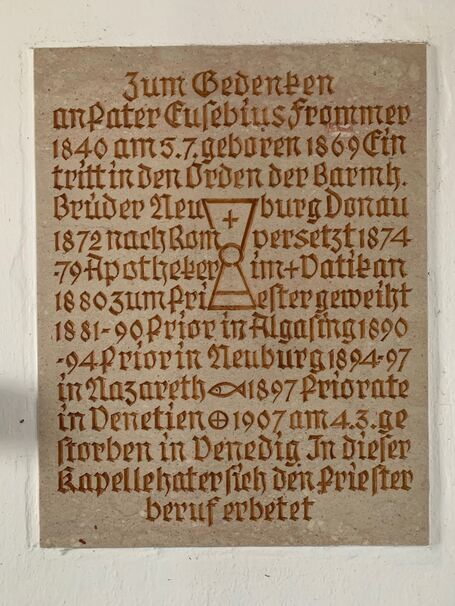 Zum Gedenken
an Pater Eusebius Frommer
1840 am 5.7. geboren 1869 Ein
tritt in den Orden der Barmh.
Brüder Neuburg Donau
1872 nach Rom versetzt 1874
-79 Apotheker im + Vatikan
1880 zum Priester geweiht
1881-90 Prior in Algasing 1890
-94 Prior in Neuburg 1894-97
in Nazareth 1897 Priorate
in Venetien 1907 am 4.3. ge
storben in Venedig In dieser
Kapelle hat er sich den Priester
beruf erbetet